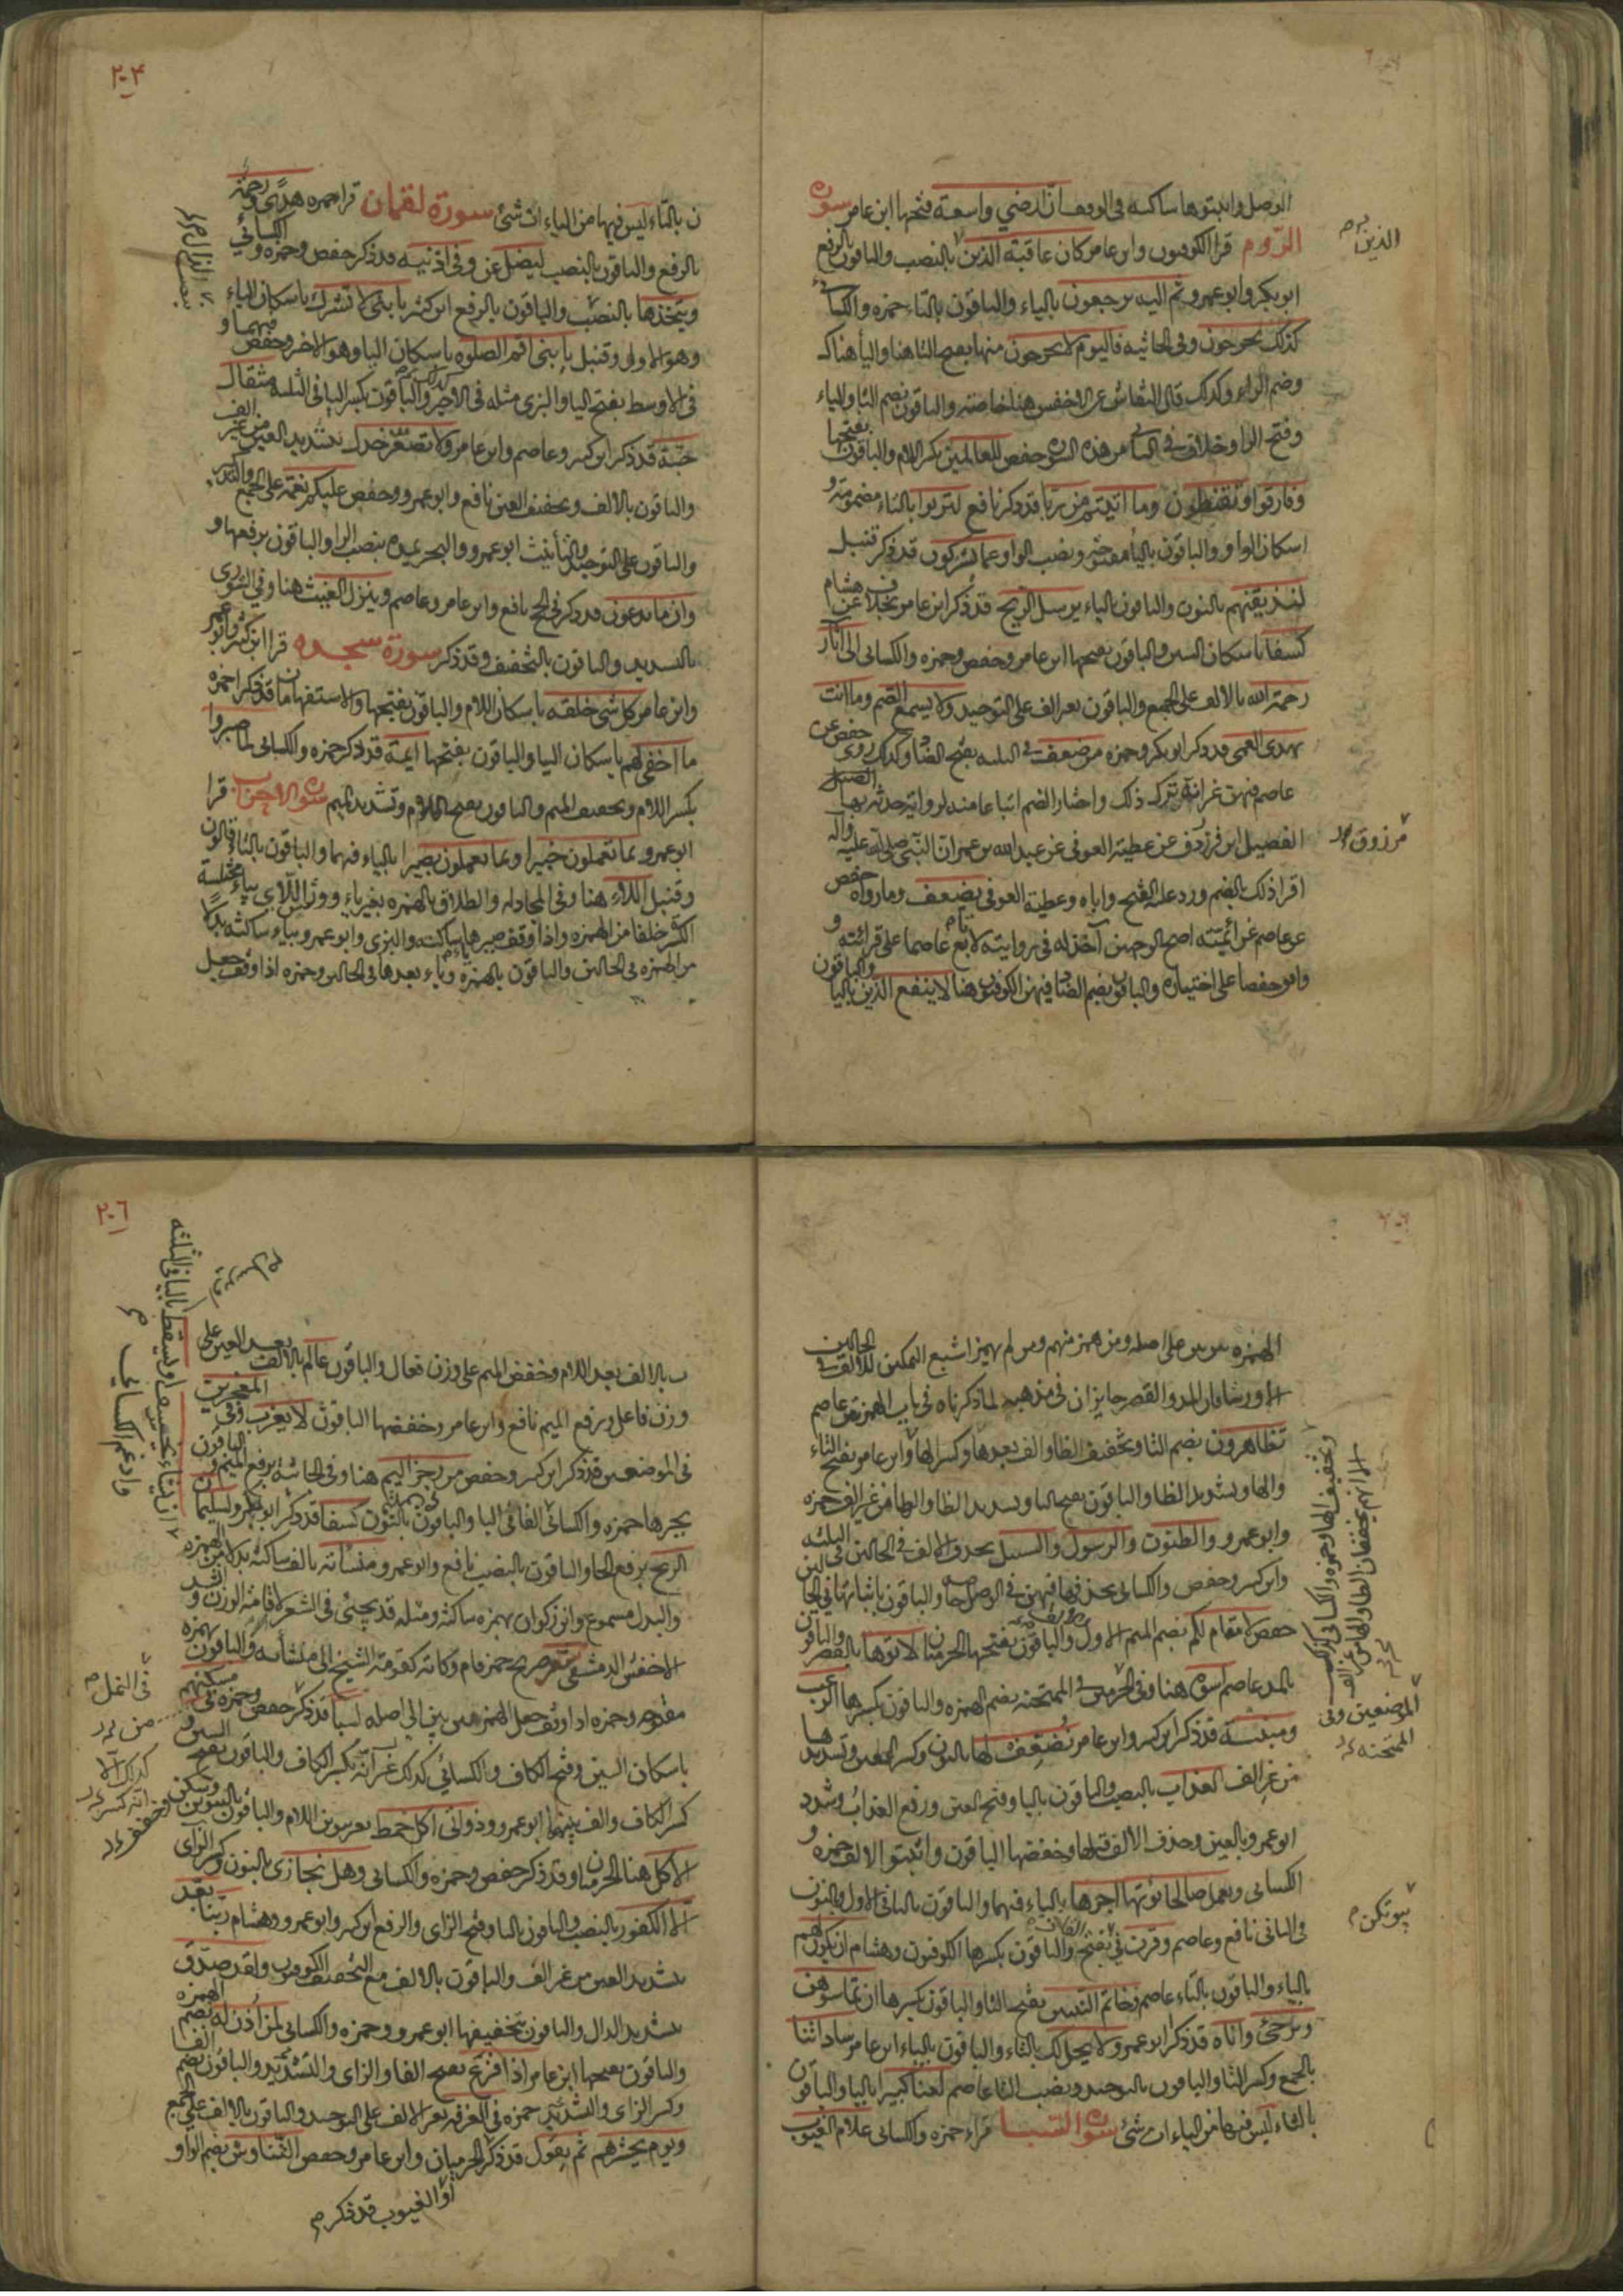 الوصل واثبتوها ساكنه فى الوقف ان ارضي واسعة فتحها ابن عامر سورة
الروم قرا الكوفيون وابن عامر كان عاقبة الذين بالنصب والباقون بالرفع
الذين
ابو بكر وابو عمرو ثم اليه يرجعون بالياء والباقون بالتاء حمزه والكسائى
كذلك تخرجون وفى الجاثيه فاليوم لا يخرجون منها بفتح التا هنا واليا هناك
وضم الراء وكذلك قال النقاش عن الاخفش هنا خاصة والباقون بضم التا والياء
وفتح الرا حفص للعالمين بكسر اللام والباقون بفتحها
وفارقوا ويقنطون وما اتيتم من ربا قد ذكر نافع لتربوا بالتاء مضمومة و
اسكان الواو والباقون بالياء مفتوحة ونصب الواو عما يشركون قد ذكر قنبل
لنذيقنهم بالنون والباقون بالياء يرسل الريح قد ذكر ابن عامر بخلاف عن هشام
كسفا باسكان السين والباقون بفتحها ابن عامر وحفص وحمزه والكسائى الى اثار
رحمة الله بالالف على الجمع والباقون بغير الف على التوحيد ولا يسمع الصم وما انت
بهدى العمى قد ذكر ابو بكر وحمزه من ضعف فى الثلثه بفتح الضاد وكذلك روى حفص عن
عاصم فيهن غير انه ترك ذلك واختار الضم اتباعا منه لرواية حدثه بها
الفضيل ابن مرزوق عن عطية العوفى عن عبد الله بن عمر ان النبى صلى الله عليه وآله
مرزوق
اقراه ذلك بالضم ورد عليه الفتح واباه وعطية العوفى يضعف وما رواه حفص
عن عاصم عن ائمته اصح وبالوجهين آخذ له فى روايته لاتابع عاصما على قرائته و
اوافق حفصا على اختياره والباقون بضم الضاد فيهن الكوفيون هنا لا ينفع الذين باليا والباقون
٢٠٤
ن بالتاء ليس فيها من الياءات شئ سورة لقمان قرا حمزه هدى ورحمة
بالرفع والباقون بالنصب ليضل عن وفى اذنيه قد ذكر حفص وحمزه والكسائي
ويتخذها بالنصب والباقون بالرفع ابن كثير يا بنى لا تشرك باسكان الياء
وهو الاولى وقنبل يا بنى اقم الصلوه باسكان اليا وهو الاخر وحفص فيهما و
فى الاوسط بفتح اليا والبزى مثله فى الاخير والباقون بكسر اليا فى الثلثه مثقال
حبة قد ذكر ابن كثير وعاصم وابن عامر ولا تصعر خدك بتشديد العين من غير الف
والباقون بالالف وتخفيف العين نافع وابو عمرو وحفص عليكم نعمه على الجمع والتذكير
والباقون على التوحيد والتأنيث ابو عمرو والبحر يمده بنصب الرا والباقون برفعها و
وان ما يدعون قد ذكر فى الحج نافع وابن عامر وعاصم وينزل الغيث هنا وفي الشورى
بالتشديد والباقون بالتخفيف وقد ذكر سورة سجده قرا ابن كثير وابو عمر
وابن عامر كل شئ خلقه باسكان اللام والباقون بفتحها والاستفهامان قد ذكر احمزه
ما اخفى لهم باسكان اليا والباقون بفتحها ائمة قد ذكر حمزه والكسائى لما صبروا
بكسر اللام وتخفيف الميم والباقون بفتح اللام وتشديد الميم سورة الاحزاب قرا
ابو عمرو بما تعملون خبيرا وبما تعملون بصيرا بالياء فيهما والباقون بالتاء قالون
وقنبل اللاء هنا وفى المجادله والطلاق بالهمزه بغير ياء وورش اللاى بياء مختلسة
الكسر خلفا من الهمزه واذا وقف صيرها ياء ساكنه والبزى وابو عمرو بياء ساكنه بدلا
من الهمزه فى الحالين والباقون بالهمزه وياء بعدها فى الحالين وحمزه اذا وقف جعل
الهمزه بين بين على اصله ومن همز منهم ومن لم يهمز اشبع التمكين للالف فى الحالين
الا ورشا فان المد والقصر جايزان فى مذهبه لما ذكرناه فى باب الهمزتين عاصم
تظاهرون بضم التا وتخفيف الظا والف بعدها وكسر الها وابن عامر بفتح التاء
والها وتشديد الظا والباقون بفتح التا وتشديد الظا والها من غير الف حمزه
وابو عمرو والظنون والرسول والسبيل بحذف الالف فى الحالين فى الثلثه
وابن كثير وحفص والكسائى بحذفها فيهن فى الوصل خاصه والباقون باثباتها فى الحالين
حفص لا مقام لكم بضم الميم الاول والباقون بفتحها الحرميان لاتوها بالقصر والباقون
بالمد عاصم اسوة هنا وفى الحرفين فى الممتحنه بضم الهمزه والباقون بكسرها الرعب
الموضعين وفى
الممتحنه
ومبينة قد ذكر ابن كثير وابن عامر نضعف لها بالنون وكسر العين وتشديدها
من غير الف العذاب بالنصب والباقون باليا وفتح العين ورفع العذاب وشدد
ابو عمرو العين وحذف الالف قبلها وخففها الباقون واثبتوا الالف حمزه و
الكسائى ويعمل صالحا يؤتها اجرها بالياء فيهما والباقون بالتا فى الاول والنون
فى الثانى نافع وعاصم وقرن فى بفتح القاف والباقون بكسرها الكوفيون وهشام ان يكون لهم
بيوتكن
بالياء والباقون بالتاء عاصم وخاتم النبيين بفتح التا والباقون بكسرها ان تماسوهن
وترجى واناه قد ذكر ابو عمرو لا يحل لك بالتاء والباقون بالياء ابن عامر ساداتنا
بالجمع وكسر التا والباقون بالتوحيد ونصب التا عاصم لعنا كبيرا باليا والباقون
بالثاء ليس فيها من الياءات شئ سورة السبا قراء حمزه والكسائى علام الغيوب
٢٠٦
ب بالالف بعد اللام وخفض الميم على وزن فعال والباقون عالم بالالف بعد العين على
وزن فاعل ورفع الميم نافع وابن عامر وخفضها الباقون لا يعزب وفى المعجزين
فى الموضعين قد ذكر ابن كثير وحفص من رجز اليم هنا وفى الجاثيه برفع الميم والباقون
بجرها حمزه والكسائى الفا فى اليا والباقون بالنون كسفا قد ذكر ابو بكر ولسليمان
الريح برفع الحا والباقون بالنصب نافع وابو عمرو منساته بالف ساكنه بدلا من الهمزه
والبدل مسموع وابن ذكوان بهمزه ساكنه ومثله قد يجئ فى الشعر لاقامة الوزن وانشد
الاخفش الدمشقى شعر صريع خمر قام وكاته كقومة الشيخ الى منسأته والباقون بهمزه
مفتوحه وحمزه اذا وقف جعل الهمزه بين بين الى اصله لسبا قد ذكر حفص وحمزه فى مسكنهم
فى النمل
باسكان السين وفتح الكاف والكسائي كذلك غير انه بكسر الكاف والباقون بفتح السين و
كسر الكاف والف بينهما ابو عمرو وذواتى اكل خمط بغير تنوين اللام والباقون بالتنوين وسكن
الاكل هنا الحرميان وقد ذكر حفص وحمزه والكسائى وهل نجازى بالنون وكسر الزاى
الا الكفور بالنصب والباقون باليا وفتح الزاى والرفع ابن كثير وابو عمرو وهشام ربنا بعد
بتشديد العين من غير الف والباقون بالالف مع التخفيف الكوفيون ولقد صدق
بتشديد الدال والباقون بتخفيفها ابو عمرو وحمزه والكسائى لمن اذن له بضم الهمزه
والباقون بفتحها ابن عامر اذا فزع بفتح الفا والزاى والتشديد والباقون بضم الفا
وكسر الزاى والتشديد حمزه فى الغرفة بغير الالف على التوحيد والباقون بالالف على الجمع
ويوم يحشرهم ثم يقول قد ذكر الحرميان وابن عامر وحفص التناوش بضم الواو
الغيوب قد ذكر